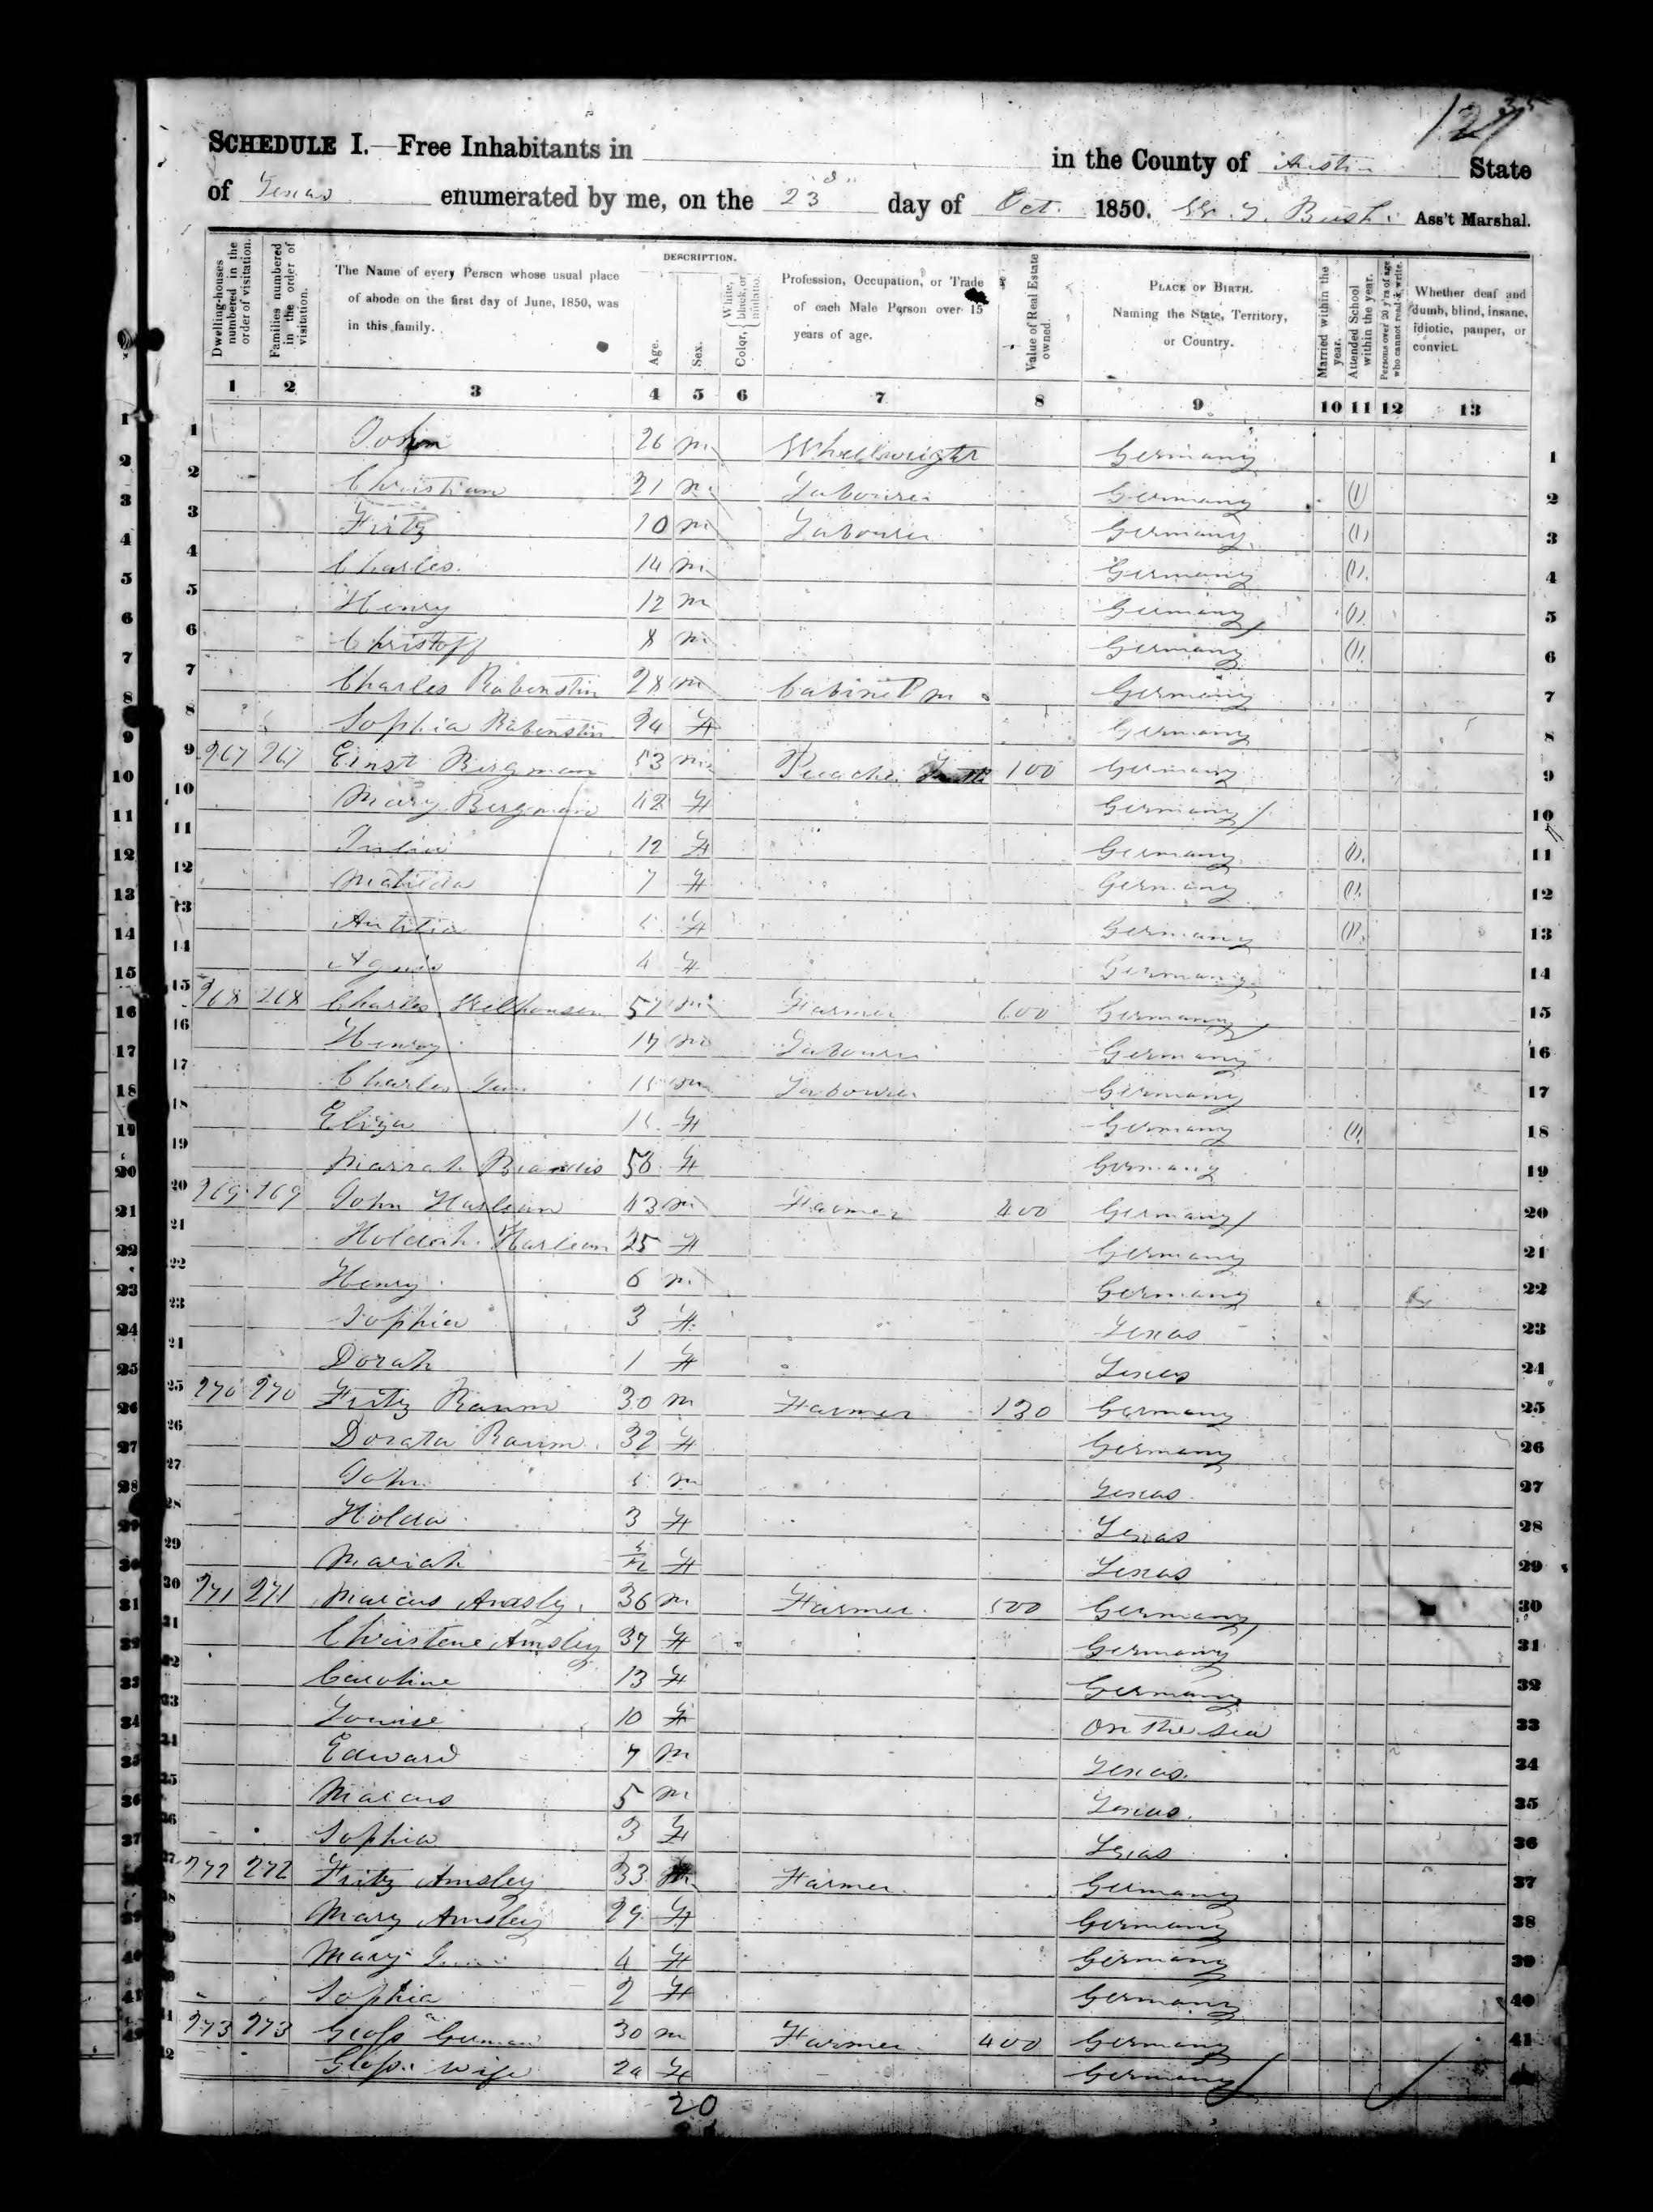 35
127
SCHEDULE I.—Free Inhabitants in in the County of Austin State
of Texas enumerated by me, on the 23d day of Oct. 1850. Bush Ass't Marshal.
Dwelling-houses numbered in the order of visitation.
Families numbered in the order of visitation.
The Name of every Person whose usual place of abode on the first day of June, 1850, was in this family.
DESCRIPTION.
Age.
Sex.
Color, { White, black, or mulatto.
Profession, Occupation, or Trade of each Male Person over 15 years of age.
Value of Real Estate owned.
PLACE OF BIRTH. Naming the State, Territory, or Country.
Married within the year.
Attended School within the year.
Persons over 20 y'rs of age who cannot read & write.
Whether deaf and dumb, blind, insane, idiotic, pauper, or convict.
1 2 3 4 5 6 7 8 9 10 11 12 13
1 John 26 m Whellwright Germany 1
2 Christian 21 m Labourer Germany (1) 2
3 Fritz 10 m Labourer Germany (1) 3
4 Charles 14 m Germany (1) 4
5 Henry 12 m Germany (1) 5
6 Christoff 8 m Germany (1) 6
7 Charles Rabenstin 28 m Cabinet m Germany 7
8 Sophia Rabenstin 24 F Germany 8
9 267 267 Ernst Bergman 53 m 100 Germany 9
10 Mary Bergman 42 F Germany 10
11 12 F Germany (1) 11
12 Matilda 7 F Germany (1) 12
13 F Germany (1) 13
14 Agnis 4 F Germany 14
15 268 268 Charles 57 m Farmer 600 Germany 15
16 Henry 17 m Labourer Germany 16
17 Charles m Labourer Germany 17
18 Eliza F Germany (1) 18
19 Marrah Brandis 56 F Germany 19
20 269 269 John Harlean 43 m Farmer 400 Germany 20
21 Holdah Harlean 25 F Germany 21
22 Henry 6 m Germany 22
23 Sophia 3 F Texas 23
24 Dorah 1 F Texas 24
25 270 270 Fritz Baum 30 m Farmer 130 Germany 25
26 Dorata Baum 32 F Germany 26
27 John 5 m Texas 27
28 Holda 3 F Texas 28
29 Mariah 5/12 F Texas 29
30 271 271 Marcus Amsly 36 m Farmer 500 Germany 30
31 Christene Amsley 37 F Germany 31
32 Caroline 13 F Germany 32
33 Louise 10 F On the Sea 33
34 Edward 7 m Texas 34
35 Marcus 5 m Texas 35
36 Sophia 3 F Texas 36
37 272 272 Fritz Amsley 33 m Farmer Germany 37
38 Mary Amsley 29 F Germany 38
39 Mary 4 F Germany 39
40 Sophia 2 F Germany 40
41 273 273 German 30 m Farmer 400 Germany 41
42 wife 24 F Germany 42
20